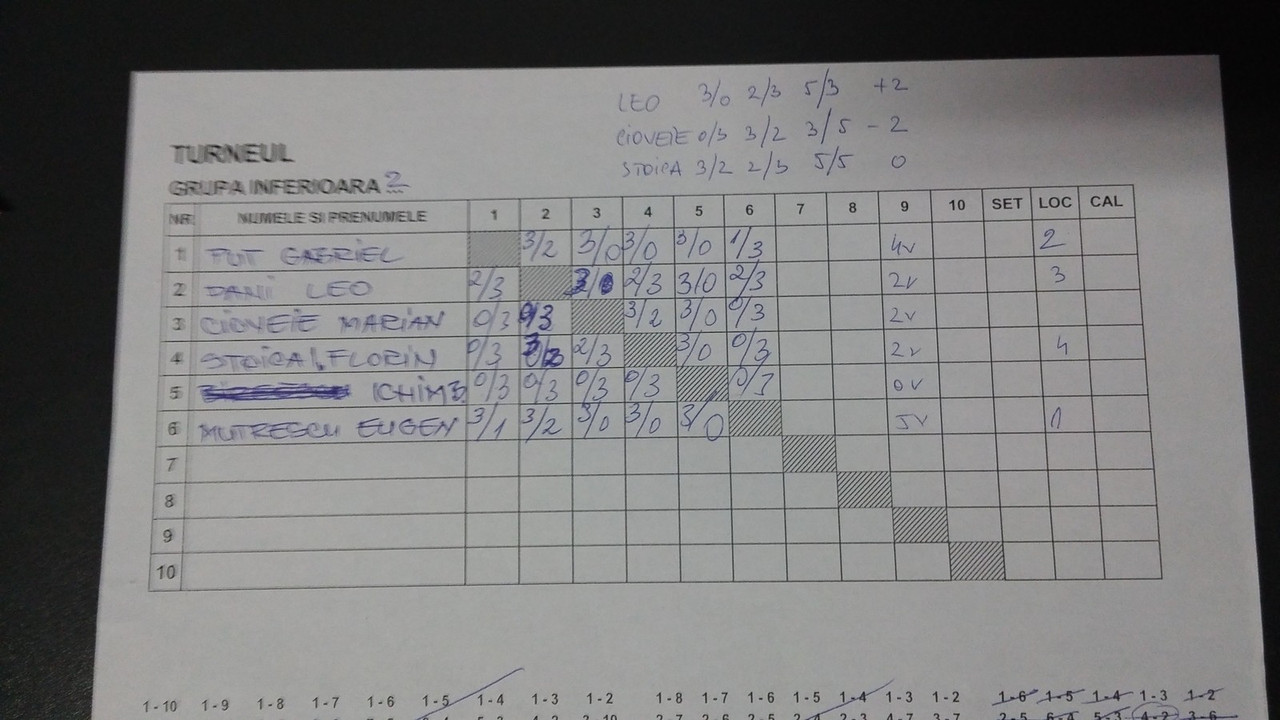 LEO 3/0 2/3 5/3 +2
CIOVEIE 0/3 3/2 3/5 -2
STOICA 3/2 2/3 5/5 0
TURNEUL
GRUPA INFERIOARA 2
NR. NUMELE SI PRENUMELE 1 2 3 4 5 6 7 8 9 10 SET LOC CAL
1 PUT GABRIEL 3/2 3/0 3/0 3/0 1/3 4v 2
2 DANI LEO 2/3 3/0 2/3 3/0 2/3 2v 3
3 CIOVEIE MARIAN 0/3 0/3 3/2 3/0 0/3 2v
4 STOICA FLORIN 0/3 3/2 2/3 3/0 0/3 2v 4
5 ICHIM 0/3 0/3 0/3 0/3 0/3 0v
6 MUTRESCU EUGEN 3/1 3/2 3/0 3/0 3/0 5v 1
7
8
9
10
1-10 1-9 1-8 1-7 1-6 1-5 1-4 1-3 1-2 1-8 1-7 1-6 1-5 1-4 1-3 1-2 1-6 1-5 1-4 1-3 1-2